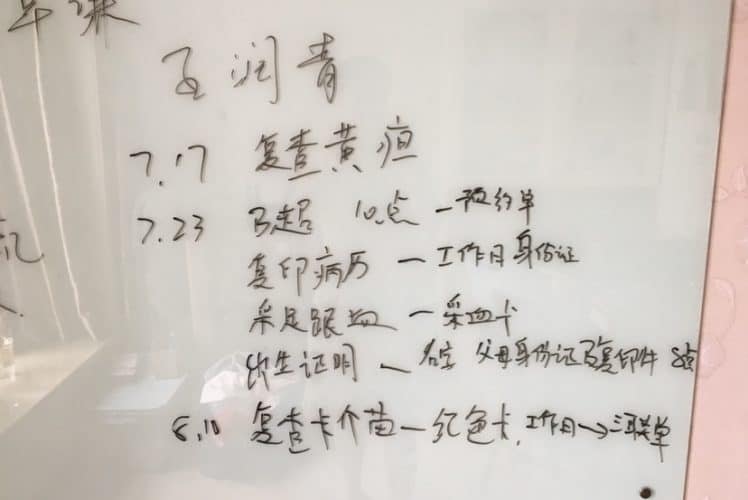 润青
7.17 复查黄疸
7.23 B超 10点 — 预约单
复印病历 — 工作日身份证
采足跟血 — 采血卡
出生证明 — 名字 父母身份证 复印件
8.10 复查卡介苗 — 红色卡,工作日→三联单